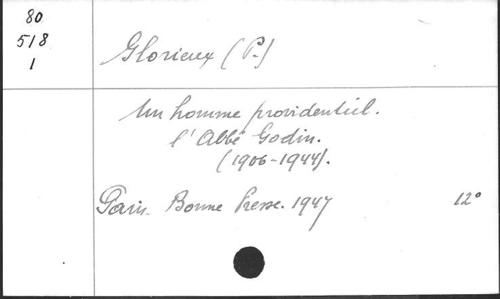 80
518
1
Glorieux (P.)
Un homme providentiel.
l'Abbé Godin.
(1906-1944).
Paris. Bonne Presse. 1947 12°